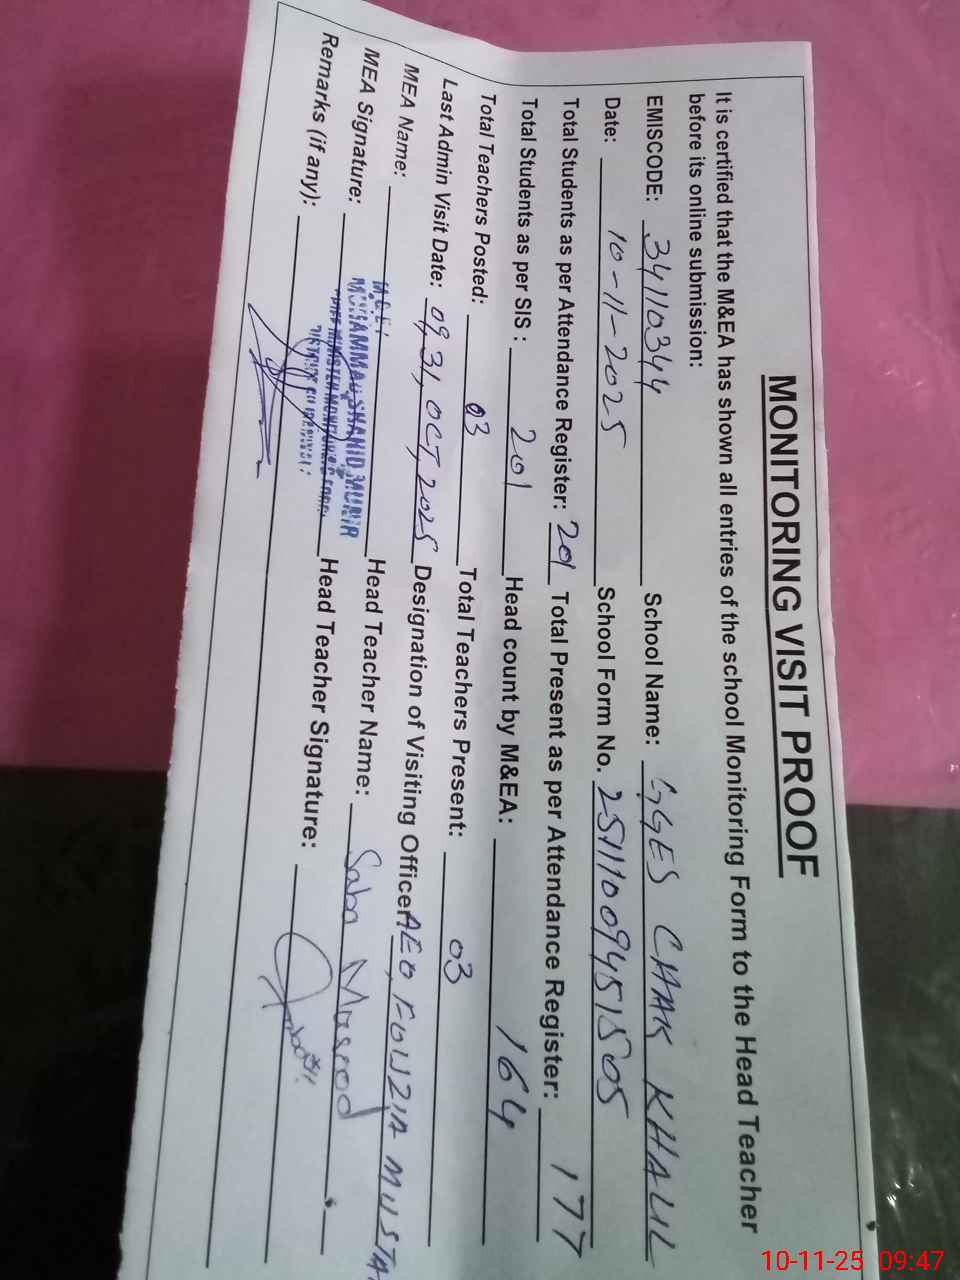 MONITORING VISIT PROOF
It is certified that the M&EA has shown all entries of the school Monitoring Form to the Head Teacher
before its online submission:
EMISCODE: 34110344 School Name: GGES CHAK KHALIL
Date: 10-11-2025 School Form No. 25111009451505
Total Students as per Attendance Register: 201 Total Present as per Attendance Register: 177
Total Students as per SIS : 201 Head count by M&EA: 164
Total Teachers Posted: 03 Total Teachers Present: 03
Last Admin Visit Date: 09, 31, OCT, 2025 Designation of Visiting Officer: AEO FOUZIA MUSTA
MEA Name: MUHAMMAD SHAHID MUNIR Head Teacher Name: Saba Masood
MEA Signature: Head Teacher Signature:
Remarks (if any):
10-11-25 09:47